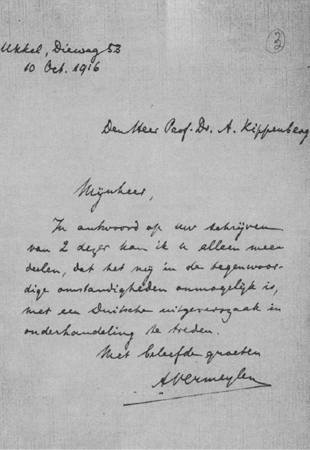 Ukkel, Dieweg 53
10 Oct. 1916
3
Den Heer Prof. Dr. A. Kippenberg
Mijnheer,
In antwoord op uw schrijven
van 2 dezer kan ik u alleen mee-
deelen, dat het mij in de tegenwoor-
dige omstandigheden onmogelijk is,
met een Duitsche uitgeverszaak in
onderhandeling te treden.
Met beleefde groeten
AVermeylen